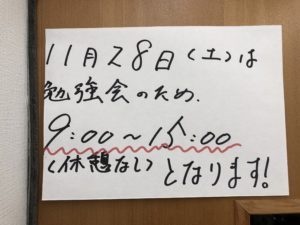 11月28日(土)は
勉強会のため.
9:00～15:00
(休憩なし)となります!